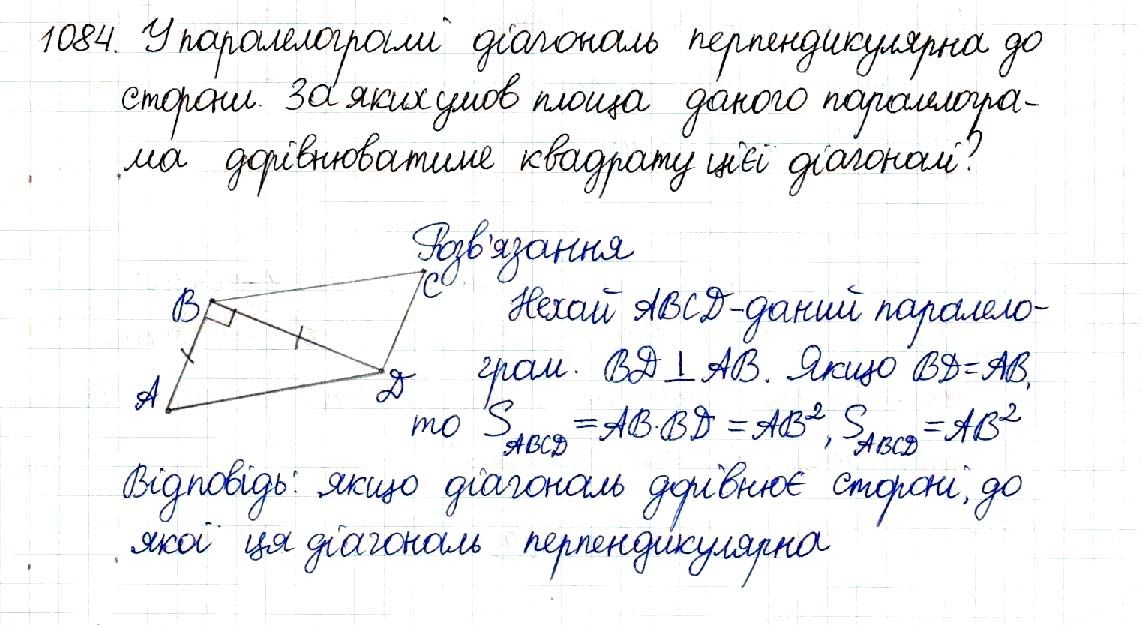 1084. У паралелограмі діагональ перпендикулярна до
сторони. За яких умов площа даного паралелогра-
ма дорівнюватиме квадрату цієї діагоналі?
Розв'язання
C
B
Нехай ABCD-даний паралело-
грам. BD⊥AB. Якщо BD=AB,
A
D
то S_ABCD=AB·BD=AB², S_ABCD=AB²
Відповідь: якщо діагональ дорівнює стороні, до
якої ця діагональ перпендикулярна